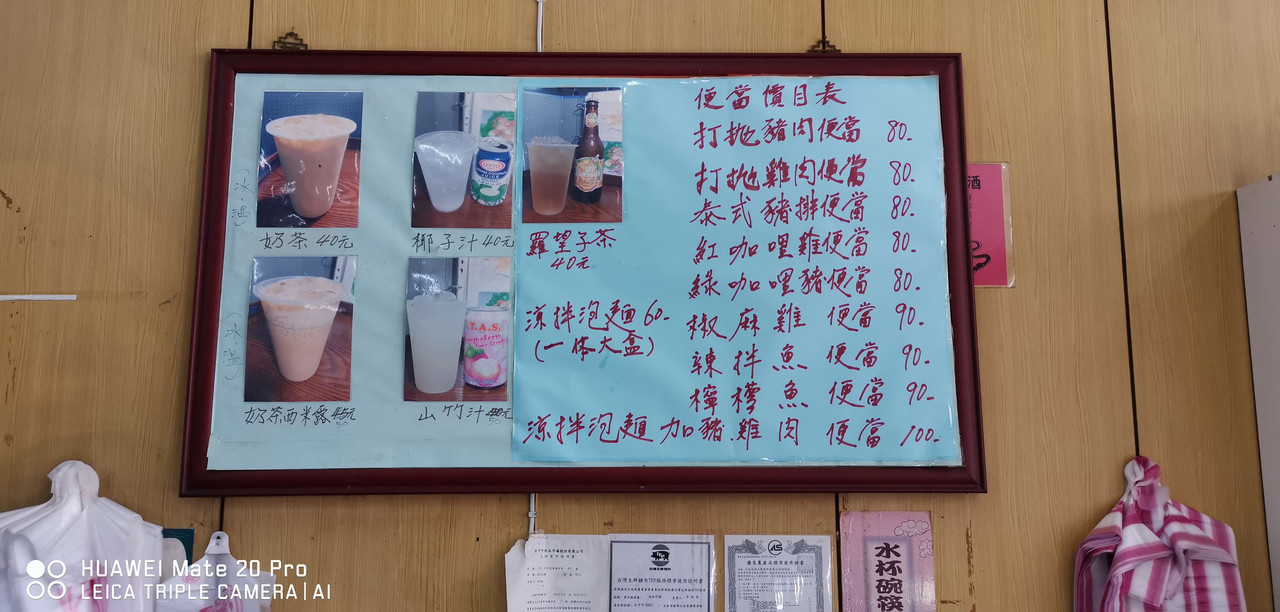 (冰.溫)
奶茶 40元
椰子汁 40元
羅望子茶
40元
(冰.溫)
奶茶西米露 45元
50
山竹汁 40元
50
T.A.S.
便當價目表
打拋豬肉便當 80.
打拋雞肉便當 80.
泰式豬排便當 80.
紅咖哩雞便當 80.
綠咖哩豬便當 80.
涼拌泡麵 60.
(一体大盒)
椒麻雞 便當 90.
辣拌魚 便當 90.
檸檬魚 便當 90.
涼拌泡麵加豬.雞肉 便當 100.
酒
水杯碗筷
HUAWEI Mate 20 Pro
LEICA TRIPLE CAMERA | AI